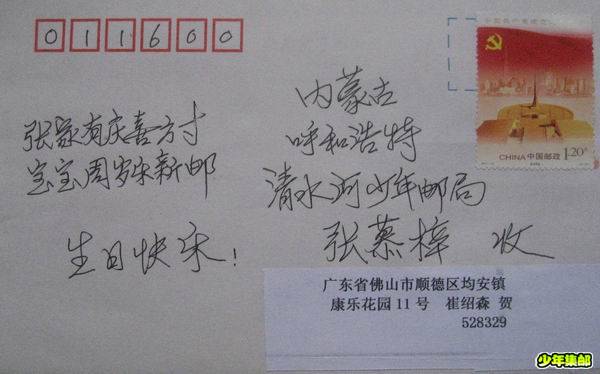 011600
内蒙古
呼和浩特
清水河少年邮局
张慕梓 收
张家有庆喜方寸
宝宝周岁乐新邮
生日快乐!
CHINA 中国邮政
1.20元
广东省佛山市顺德区均安镇
康乐花园11号 崔绍森 贺
528329
少年集邮